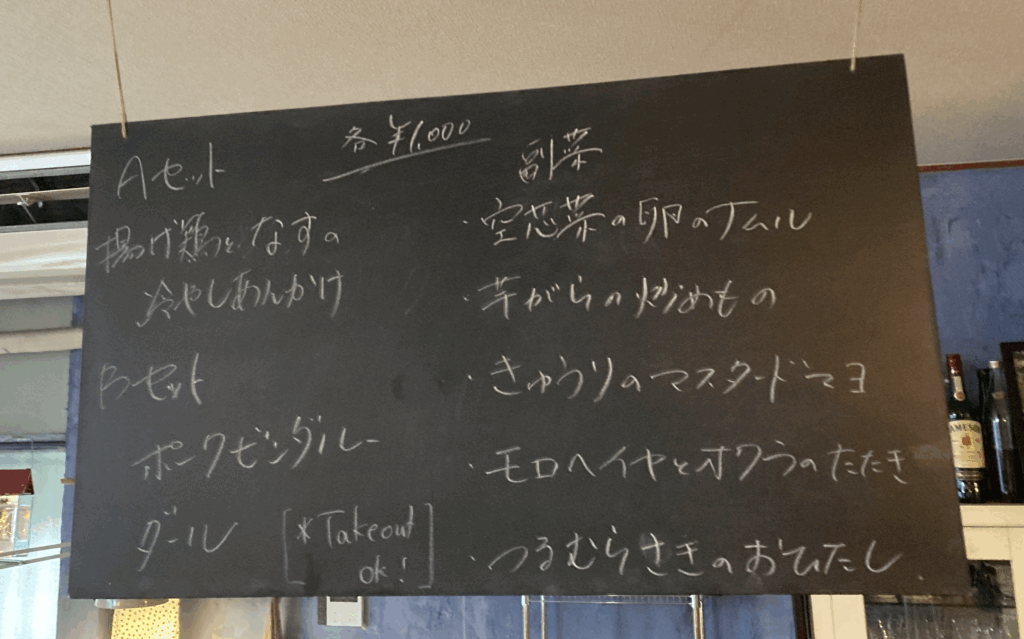 各 ¥1,000
Aセット
揚げ鶏となすの
冷やしあんかけ
Bセット
ポークビンダルー
ダール
[*Takeout
ok!]
副菜
・空芯菜の卵のナムル
・芋がらの炒めもの
・きゅうりのマスタードマヨ
・モロヘイヤとオクラのたたき
・つるむらさきのおひたし
JAMESON